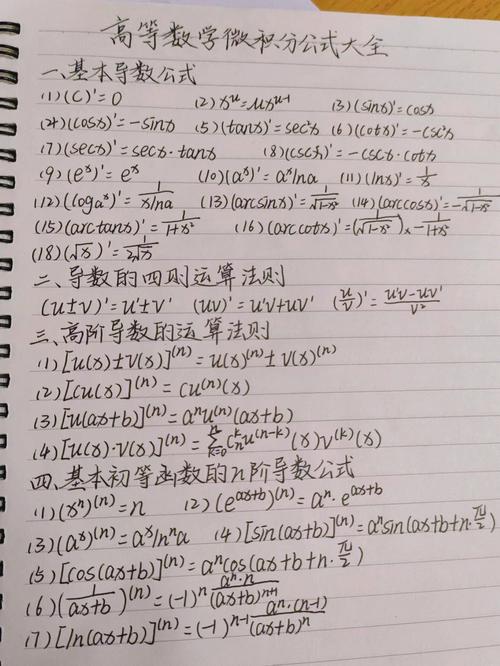 高等数学微积分公式大全
一、基本导数公式
(1)(C)'=0 (2)x^u=ux^{u-1} (3)(sinx)'=cosx
(4)(cosx)'=-sinx (5)(tanx)'=sec²x (6)(cotx)'=-csc²x
(7)(secx)'=secx·tanx (8)(cscx)'=-cscx·cotx
(9)(e^x)'=e^x (10)(a^x)'=a^x lna (11)(lnx)'=1/x
(12)(loga^x)'=1/(xlna) (13)(arcsinx)'=1/√(1-x²) (14)(arccosx)'=-1/√(1-x²)
(15)(arctanx)'=1/(1+x²) (16)(arccotx)'=(1/√(1-x²))x -1/(1+x²)
(18)(√x)'=1/(2√x)
二、导数的四则运算法则
(u±v)'=u'±v' (uv)'=u'v+uv' (u/v)'=(u'v-uv')/v²
三、高阶导数的运算法则
(1)[u(x)±v(x)]^(n)=u(x)^(n)±v(x)^(n)
(2)[cu(x)]^(n)=cu^(n)(x)
(3)[u(ax+b)]^(n)=a^n u^(n)(ax+b)
(4)[u(x)·v(x)]^(n)=∑_{k=0}^{n} C_n^k u^(n-k)(x)v^(k)(x)
四、基本初等函数的n阶导数公式
(1)(x^n)^(n)=n (2)(e^{ax+b})^(n)=a^n·e^{ax+b}
(3)(a^x)^(n)=a^x ln^n a (4)[sin(ax+b)]^(n)=a^n sin(ax+b+n·π/2)
(5)[cos(ax+b)]^(n)=a^n cos(ax+b+n·π/2)
(6)(1/(ax+b))^(n)=(-1)^n a^n·n/(ax+b)^{n+1}
(7)[ln(ax+b)]^(n)=(-1)^{n-1} a^n·(n-1)/(ax+b)^n